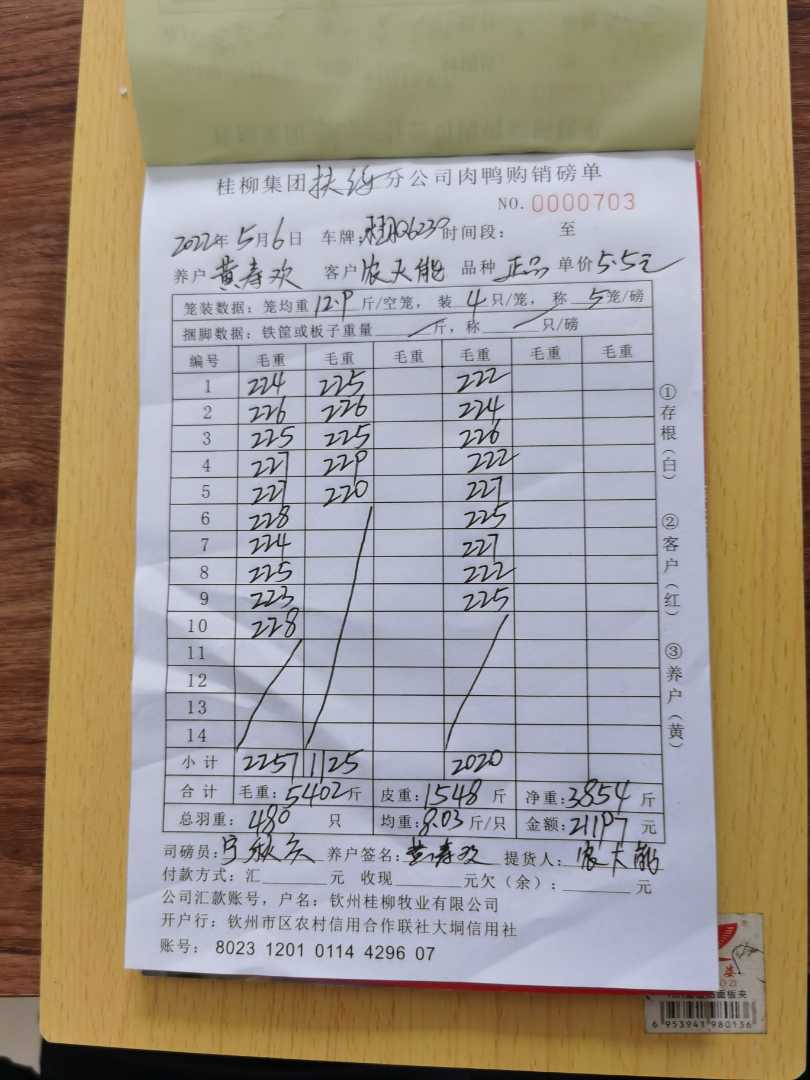 桂柳集团扶绥分公司肉鸭购销磅单
NO. 0000703
2022年5月6日 车牌: 时间段: 至
养户 黄寿欢 客户 农天能 品种 正品 单价 5.5元
笼装数据: 笼均重 12.9 斤/空笼, 装 4 只/笼, 称 5 笼/磅
捆脚数据: 铁筐或板子重量 / 斤, 称 / 只/磅
编号 毛重 毛重 毛重 毛重 毛重 毛重
1 224 225 222
2 226 226 224
3 225 225 226
4 227 229 222
5 227 220 227
6 228 225
7 224 227
8 225 222
9 223 225
10 228
11
12
13
14
小计 2257 1125 2020
合计 毛重: 5402 斤 皮重: 1548 斤 净重: 3854 斤
总羽重: 480 只 均重: 8.03 斤/只 金额: 21197 元
司磅员: 养户签名: 黄寿欢 提货人: 农天能
付款方式: 汇 元 收现 元欠(余): 元
公司汇款账号, 户名: 钦州桂柳牧业有限公司
开户行: 钦州市区农村信用合作联社大垌信用社
账号: 8023 1201 0114 4296 07
①存根(白) ②客户(红) ③养户(黄)
6 953941 980136